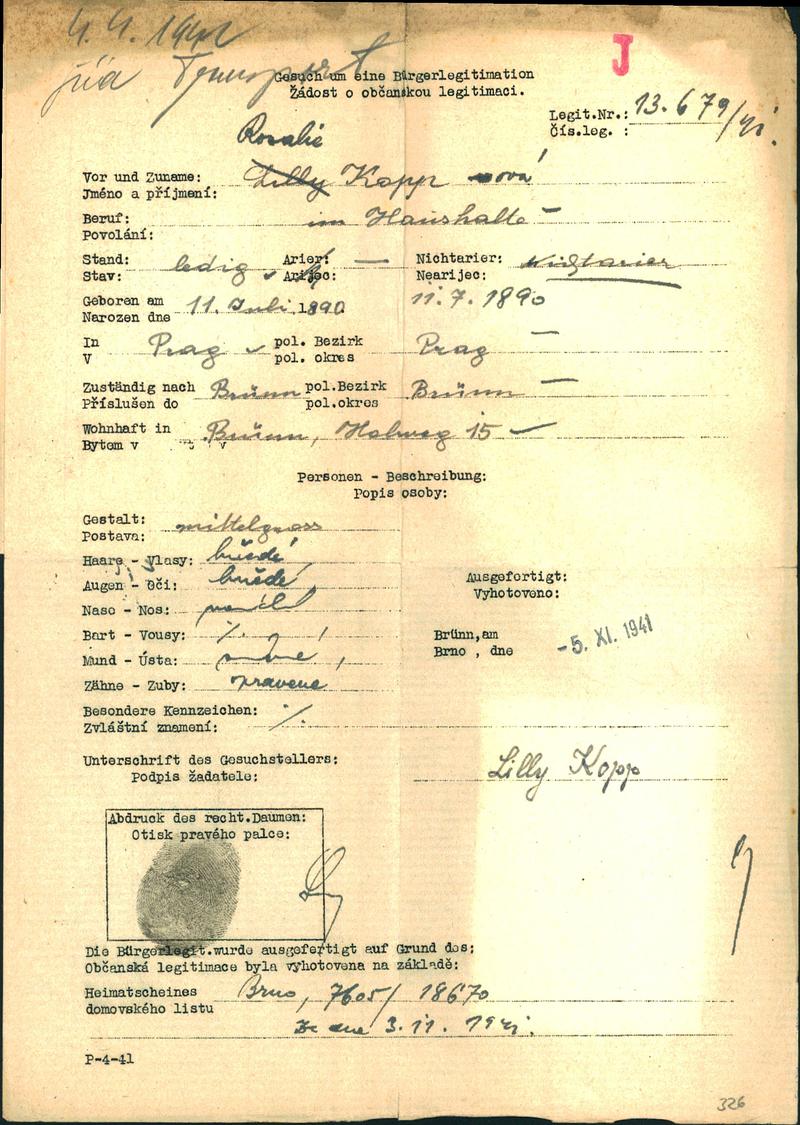 4. 4. 1942
J
Transport
Gesuch um eine Bürgerlegitimation
Žádost o občanskou legitimaci.
Legit.Nr.: 13.679/41.
Čís.leg. :
Rosalie
Vor und Zuname: Lilly Kopp -ová
Jméno a příjmení:
Beruf: im Haushalte
Povolání:
Stand: ledig Arier: — Nichtarier: Nichtarier
Stav: Arijec: Nearijec:
Geboren am 11. Juli 1890 11.7.1890
Narozen dne
In Prag pol. Bezirk Prag
V pol. okres
Zuständig nach Brünn pol.Bezirk Brünn
Příslušen do pol.okres
Wohnhaft in Brünn, 15
Bytem v
Personen - Beschreibung:
Popis osoby:
Gestalt: mittelgross
Postava:
Haare - Vlasy: hnědé
Augen - Oči: hnědé
Ausgefertigt:
Vyhotoveno:
Nase - Nos:
Bart - Vousy: ·/.
Brünn,am
Brno , dne -5. XI. 1941
Mund - Ústa:
Zähne - Zuby: spravené
Besondere Kennzeichen: ·/.
Zvláštní znamení:
Unterschrift des Gesuchstellers: Lilly Kopp
Podpis žadatele:
Abdruck des recht.Daumen:
Otisk pravého palce:
Die Bürgerlegit.wurde ausgefertigt auf Grund des:
Občanská legitimace byla vyhotovena na základě:
Heimatscheines Brno, 7605/ 18670
domovského listu
ze dne 3.11. 1941.
P-4-41
326